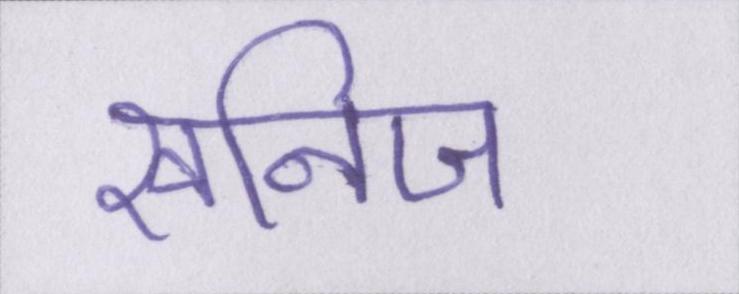 खनिज